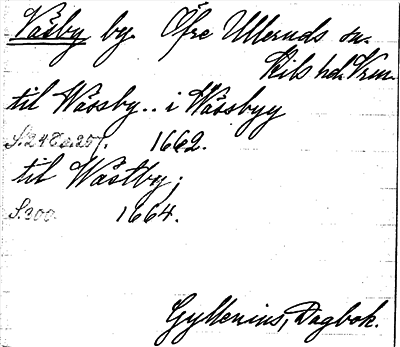 Våsby by Öfre Ulleruds sn.
Kils hd. Vrm.
til Wåssby.. i Wåssbyy
S. 248 a. 257. 1662.
til Wåstby;
S. 300. 1664.
Gyllenius, Dagbok.